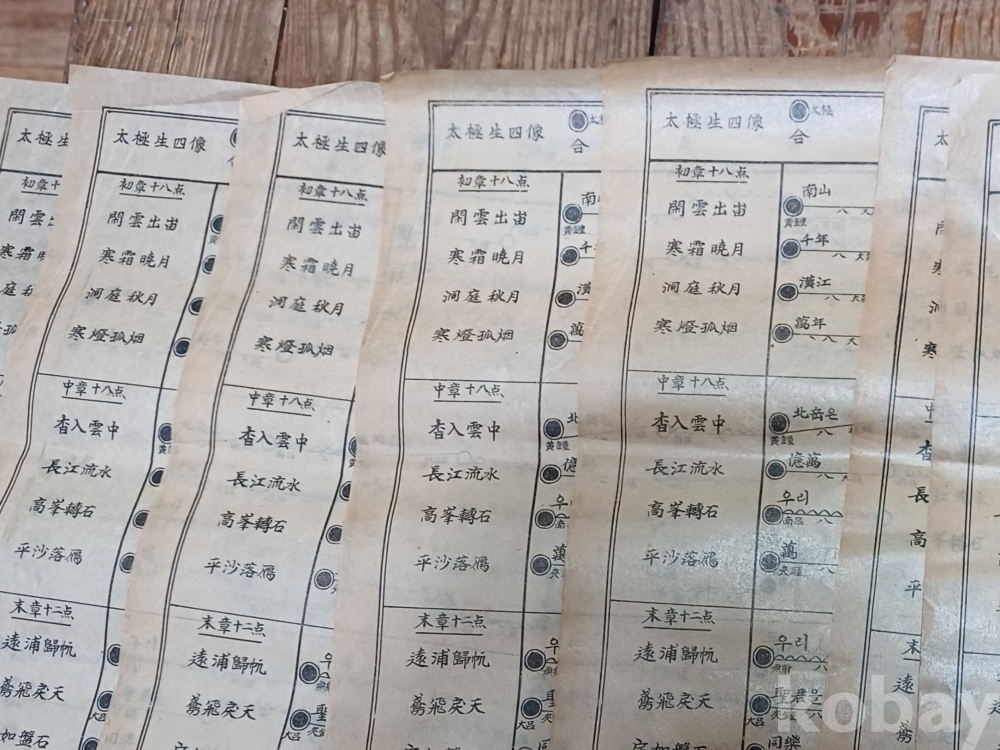 太極
初章十
開雲出
寒霜
庭
太極生四像
初章十八点
開雲出宙
寒霜曉月
洞庭秋月
寒燈孤烟
中章十八点
杳入雲中
長江流水
高峯轉石
平沙落鴈
末章十二点
遠浦歸帆
鳶飛戾天
如盤石
太極生四像
初章十八点
開雲出宙
寒霜曉月
洞庭秋月
寒燈孤烟
中章十八点
杳入雲中
長江流水
高峯轉石
平沙落鴈
末章十二点
遠浦歸帆
鳶飛戾天
太極生四像
合
初章十八点
開雲出宙
寒霜曉月
洞庭秋月
寒燈孤烟
南山
黃鍾
千
漢
萬
中章十八点
杳入雲中
長江流水
高峯轉石
平沙落鴈
北
億
우
萬
末章十二点
遠浦歸帆
鳶飛戾天
우
聖
同
太極生四像
太極
合
初章十八点
開雲出宙
寒霜曉月
洞庭秋月
寒燈孤烟
南山
黃鍾 八
千年
八
漢江
八
萬年
八
中章十八点
杳入雲中
長江流水
高峯轉石
平沙落鴈
北岳은
黃鍾 八
億萬
八
우리
南呂 八
萬
夾鍾 八
末章十二点
遠浦歸帆
鳶飛戾天
우리
六
聖君은
六
同樂
太
寒
杳
長
高
平
末
遠
鳶
kobay